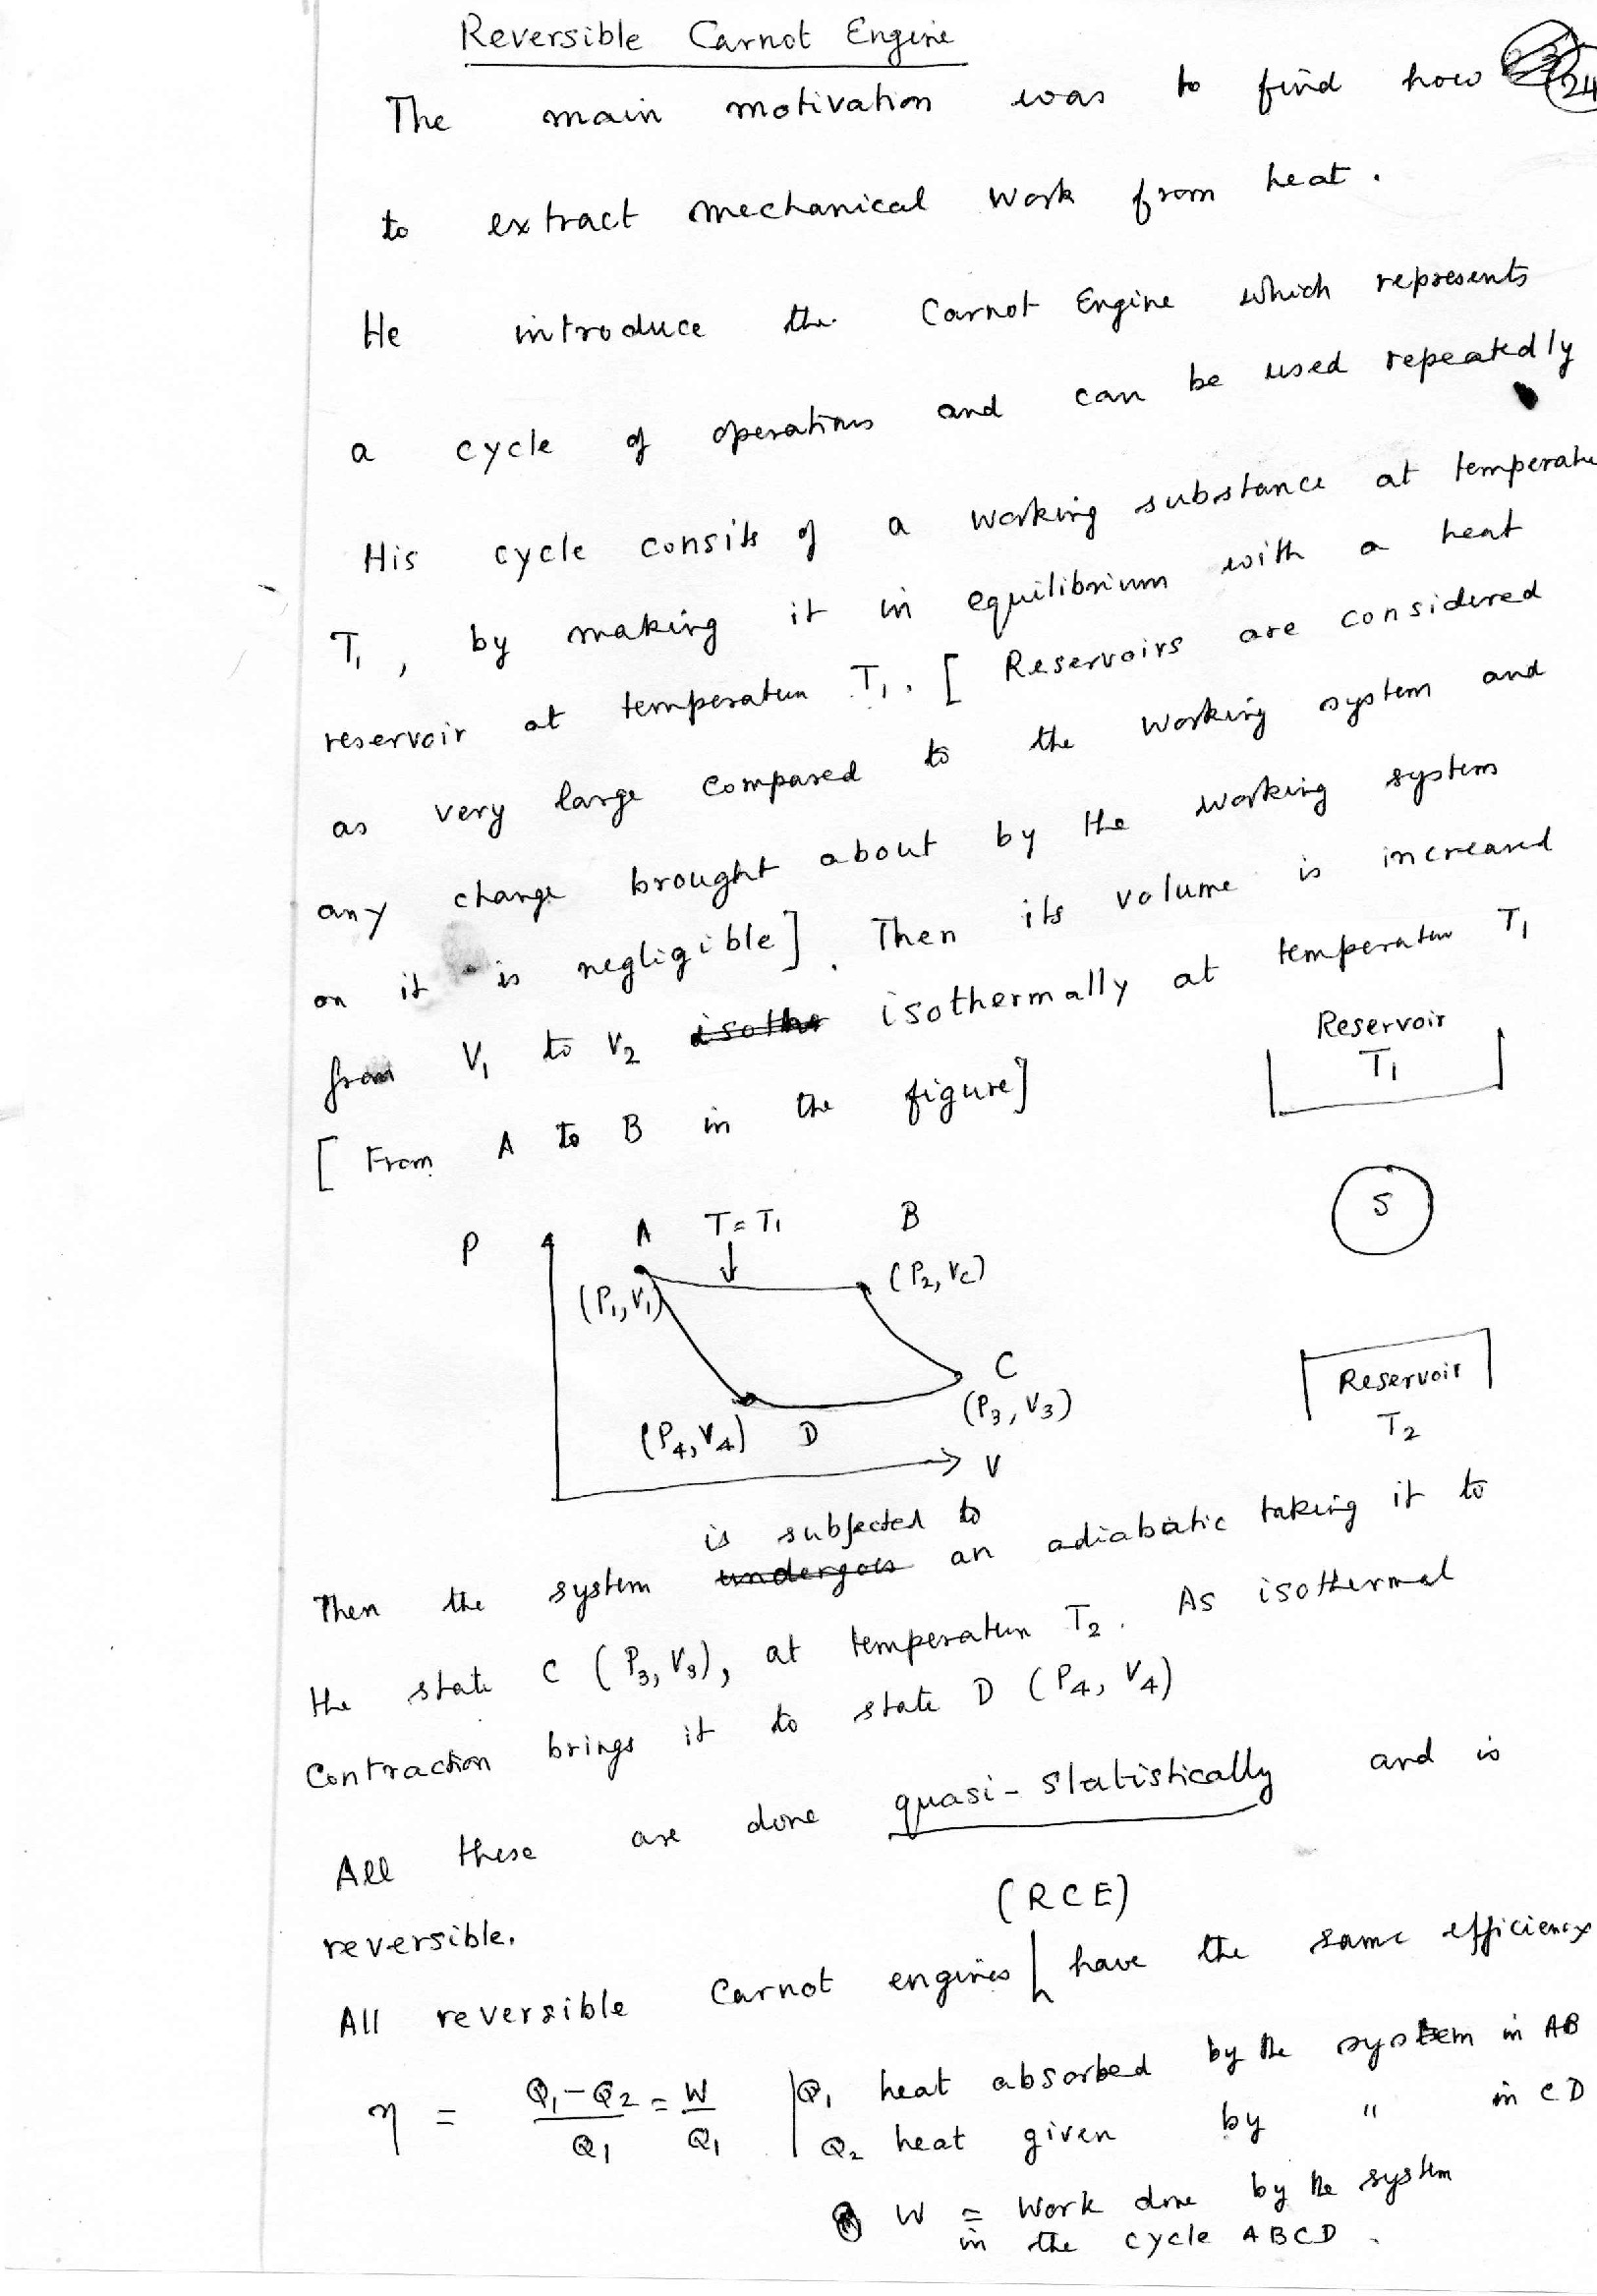 Reversible Carnot Engine
24
The main motivation was to find how
to extract mechanical work from heat.
He introduce the Carnot Engine which represents
a cycle of operations and can be used repeatedly
His cycle consits of a working substance at temperatu
T₁, by making it in equilibrium with a heat
reservoir at temperature T₁. [Reservoirs are considered
as very large compared to the working system and
any change brought about by the working system
on it is negligible]. Then its volume is increased
from V₁ to V₂ isothermally at temperature T₁
[From A to B in the figure]
Reservoir
T₁
S
P
A
T = T₁
B
(P₁, V₁)
(P₂, V_c)
C
(P₃, V₃)
(P₄, V₄)
D
V
Reservoir
T₂
is subjected to
Then the system undergoes an adiabatic taking it to
the state C (P₃, V₃), at temperature T₂. As isothermal
Contraction brings it to state D (P₄, V₄)
All these are done quasi-statistically and is
reversible.
(RCE)
All reversible Carnot engines have the same efficiency
η = (Q₁-Q₂)/Q₁ = W/Q₁
Q₁ heat absorbed by the system in AB
Q₂ heat given by " in CD
W = Work done by the system
in the cycle ABCD.